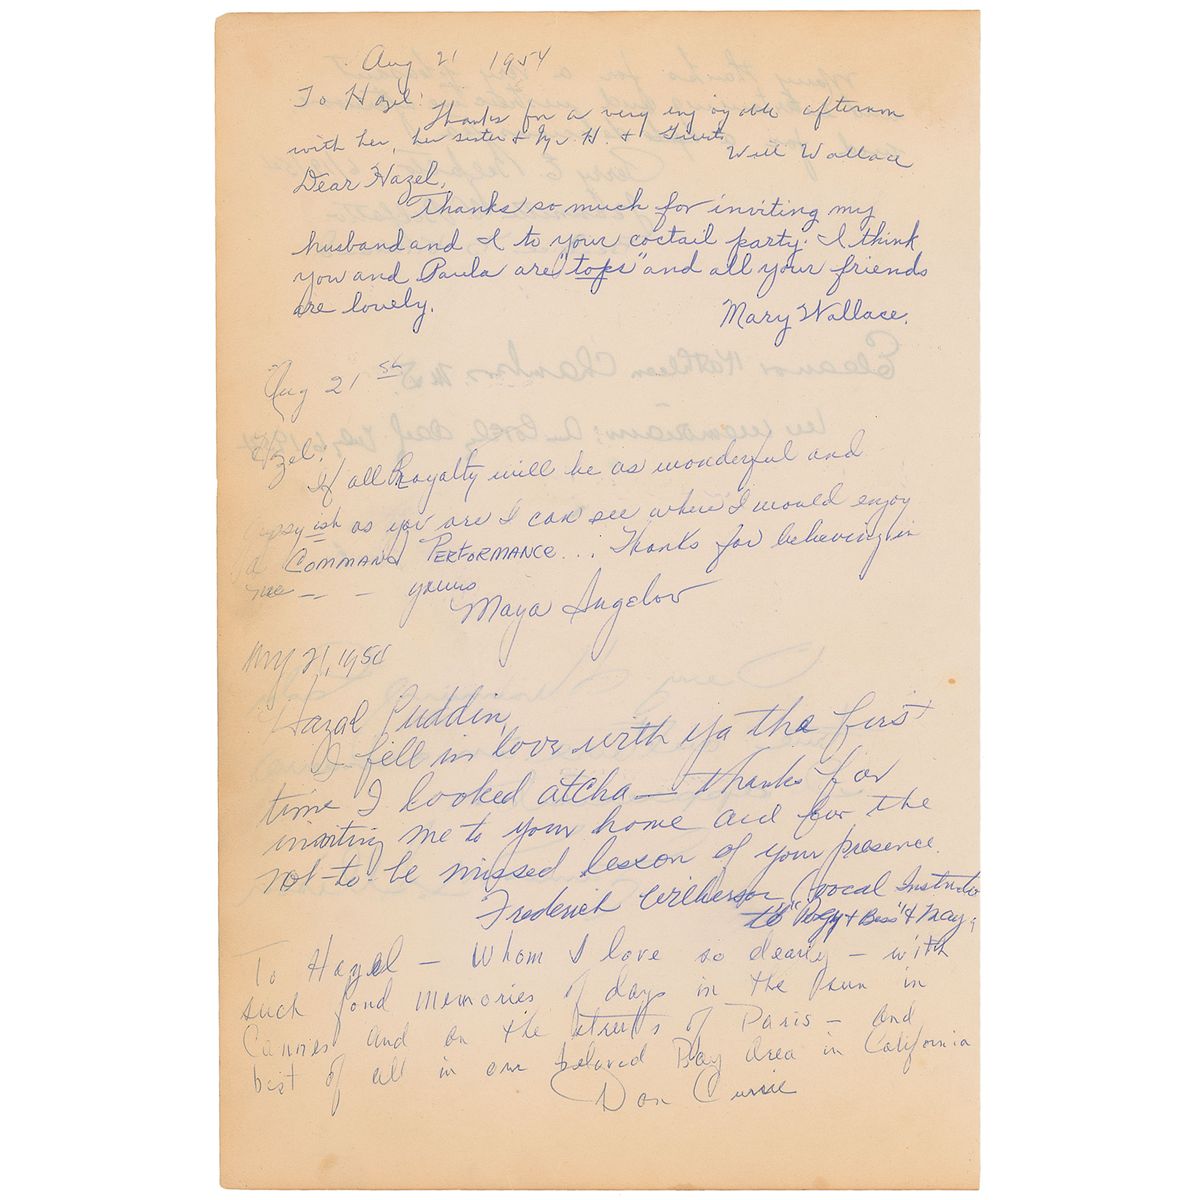 Aug 21 1954
To Hazel:
Thanks for a very enjoyable afternoon
with her, her sister & Mr. H. &
Will Wallace
Dear Hazel,
Thanks so much for inviting my
husband and I to your coctail party. I think
you and Paula are "tops" and all your friends
are lovely.
Mary Wallace.
Aug 21 st
Hazel:
If all Royalty will be as wonderful and
gypsyish as you are I can see where I would enjoy
a COMMAND PERFORMANCE... Thanks for believing in
me — — - yours
Maya Angelou
Aug 21, 1954
Hazel Puddin,
I fell in love with ya the first
time I looked atcha — thanks for
inviting me to your home and for the
not-to-be missed lesson of your presence.
Frederick Wilkerson, (vocal Instructo
to "Porgy & Bess" & Maya
To Hazel — Whom I love so dearly — with
such fond memories of days in the sun in
Cannes and on the streets of Paris — and
best of all in our beloved Bay Area in California
Don Currie